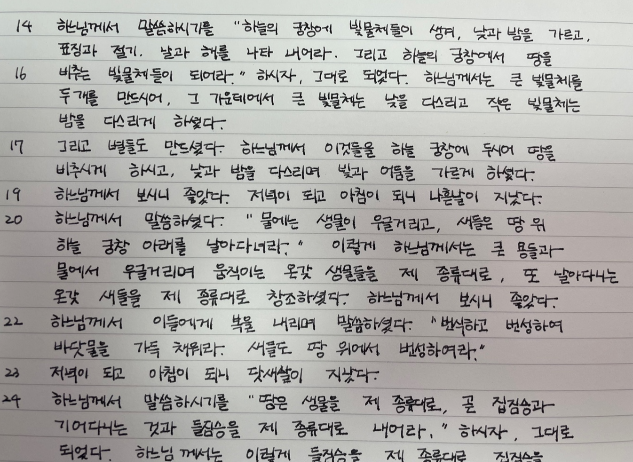 14 하느님께서 말씀하시기를 "하늘의 궁창에 빛물체들이 생겨, 낮과 밤을 가르고,
표징과 절기. 날과 해를 나타 내어라. 그리고 하늘의 궁창에서 땅을
16 비추는 빛물체들이 되어라." 하시자, 그대로 되었다. 하느님께서는 큰 빛물체를
두개를 만드시어, 그 가운데에서 큰 빛물체는 낮을 다스리고 작은 빛물체는
밤을 다스리게 하셨다.
17 그리고 별들도 만드셨다. 하느님께서 이것들을 하늘 궁창에 두시어 땅을
비추시게 하시고, 낮과 밤을 다스리며 빛과 어둠을 가르게 하셨다.
19 하느님께서 보시니 좋았다. 저녁이 되고 아침이 되니 나흗날이 지났다.
20 하느님께서 말씀하셨다. "물에는 생물이 우글거리고, 새들은 땅 위
하늘 궁창 아래를 날아다녀라." 이렇게 하느님께서는 큰 용들과
물에서 우글거리며 움직이는 온갖 생물들을 제 종류대로, 또 날아다니는
온갖 새들을 제 종류대로 창조하셨다. 하느님께서 보시니 좋았다.
22 하느님께서 이들에게 복을 내리며 말씀하셨다. "번식하고 번성하여
바닷물을 가득 채워라. 새들도 땅 위에서 번성하여라."
23 저녁이 되고 아침이 되니 닷새날이 지났다.
24 하느님께서 말씀하시기를 "땅은 생물을 제 종류대로, 곧 집짐승과
기어다니는 것과 들짐승을 제 종류대로 내어라." 하시자, 그대로
되었다. 하느님께서는 이렇게 들짐승을 제 종류대로 집짐승을